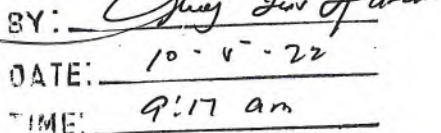 BY:
DATE: 10-5-22
TIME: 9:17 am